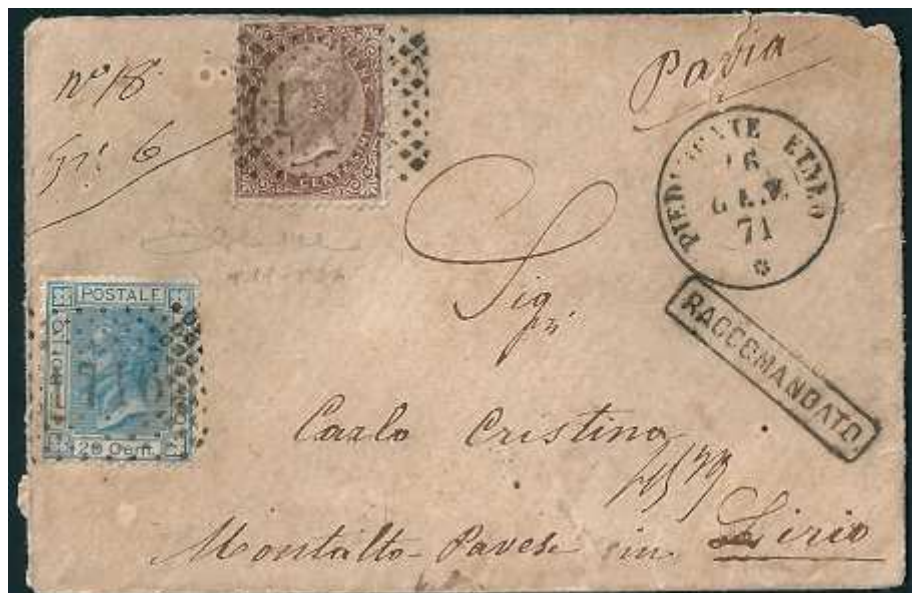 nº 18
Pavia
PIEDIMONTE ETNEO
16
GEN
71
RACCOMANDATO
POSTALE
20 Cent.
Sig
Carlo Cristina
Montalto-Pavese in Lirio